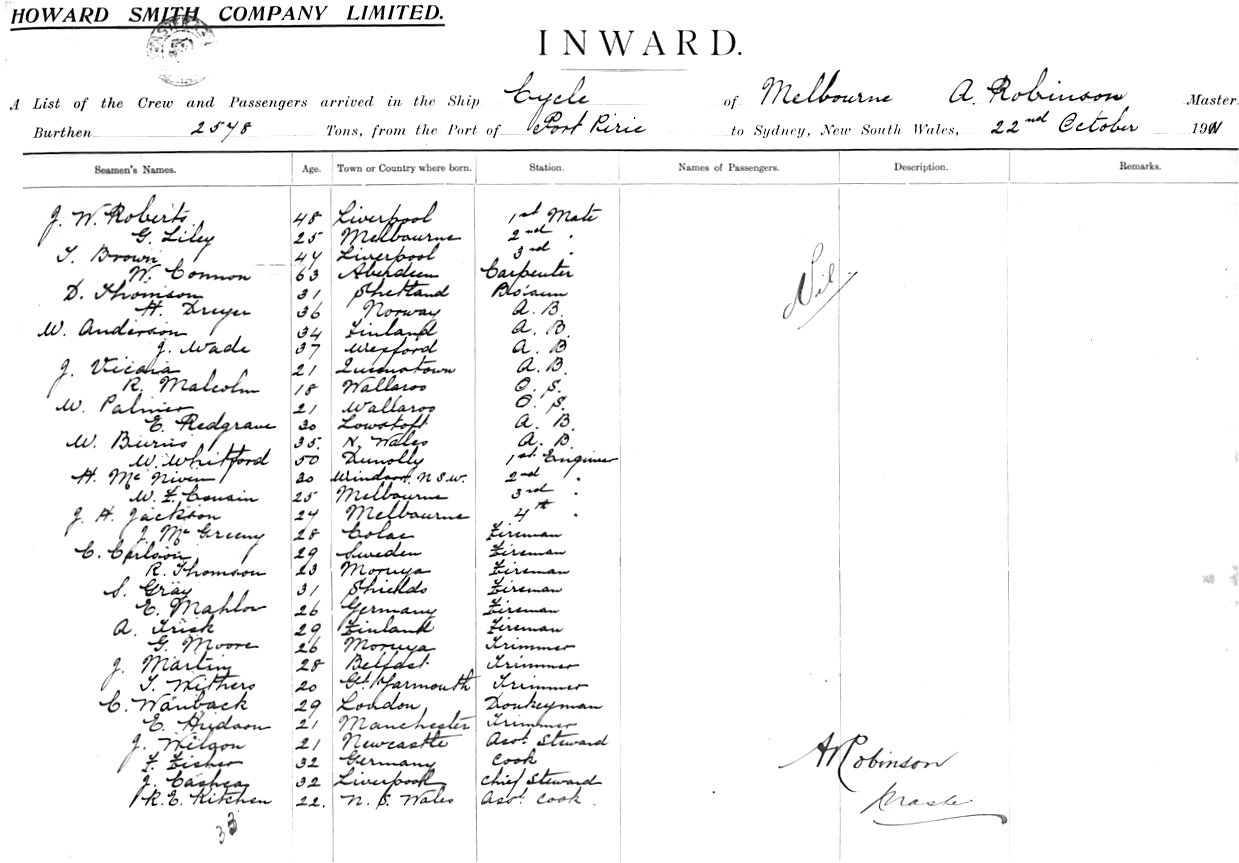 HOWARD SMITH COMPANY LIMITED.
INWARD.
A List of the Crew and Passengers arrived in the Ship Cycle of Melbourne A. Robinson Master
Burthen 2578 Tons, from the Port of Port Pirie to Sydney, New South Wales, 22nd October 1901
Seamen's Names. Age. Town or Country where born. Station. Names of Passengers. Description. Remarks.
J. W. Roberts 48 Liverpool 1st Mate
G. Liley 25 Melbourne 2nd "
T. Brown 47 Liverpool 3rd "
W. Connon 63 Aberdeen Carpenter
D. Thomson 31 Shetland Bo'sun
H. Dreyer 36 Norway A. B.
Nil.
W. Anderson 34 Finland A. B.
J. Wade 37 Wexford A. B.
J. Vicaria 21 Queenstown A. B.
R. Malcolm 18 Wallaroo O. S.
W. Palmer 21 Wallaroo O. S.
E. Redgrave 30 Lowstoft A. B.
W. Burns 35. N. Wales A. B.
W. Whitford 50 Dunolly 1st Engineer
H. McNiven 30 Windsor, N.S.W. 2nd "
W. F. Cousin 25 Melbourne 3rd "
J. H. Jackson 24 Melbourne 4th "
J. McGreeny 28 Colac Fireman
C. Carlson 29 Sweden Fireman
R. Thomson 23 Moruya Fireman
S. Gray 31 Shields Fireman
E. Mahlow 26 Germany Fireman
A. Frisk 29 Finland Fireman
G. Moore 26 Moruya Trimmer
J. Martin 28 Belfast Trimmer
T. Withers 20 Gt. Yarmouth Trimmer
C. Wanback 29 London Donkeyman
E. Hudson 21 Manchester Trimmer
J. Wilson 21 Newcastle Asst Steward
F. Fisher 32 Germany Cook
J. Cashea 32 Liverpool Chief Steward
R. E. Kitchen 22. N. S. Wales Asst Cook.
A Robinson
Master
33